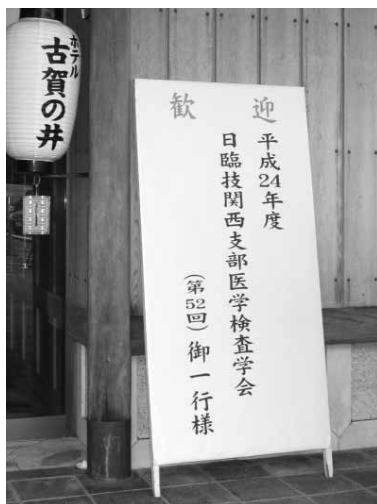 ホテル
古賀の井
歓迎
平成24年度
日臨技関西支部医学検査学会
(第52回)御一行様